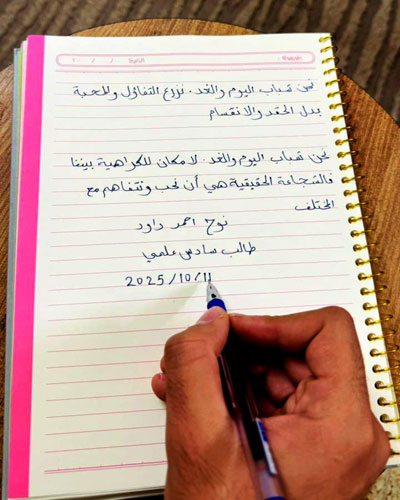 الموضوع: التاريخ / / ٢٠
نحن شباب اليوم والغد. نزرع التفاؤل والمحبة
بدل الحقد والانقسام
نحن شباب اليوم والغد. لا مكان للكراهية بيننا
فالشجاعة الحقيقية هي أن نحب ونتفاهم مع
المختلف
نوح احمد داود
طالب سادس علمي
2025/10/11